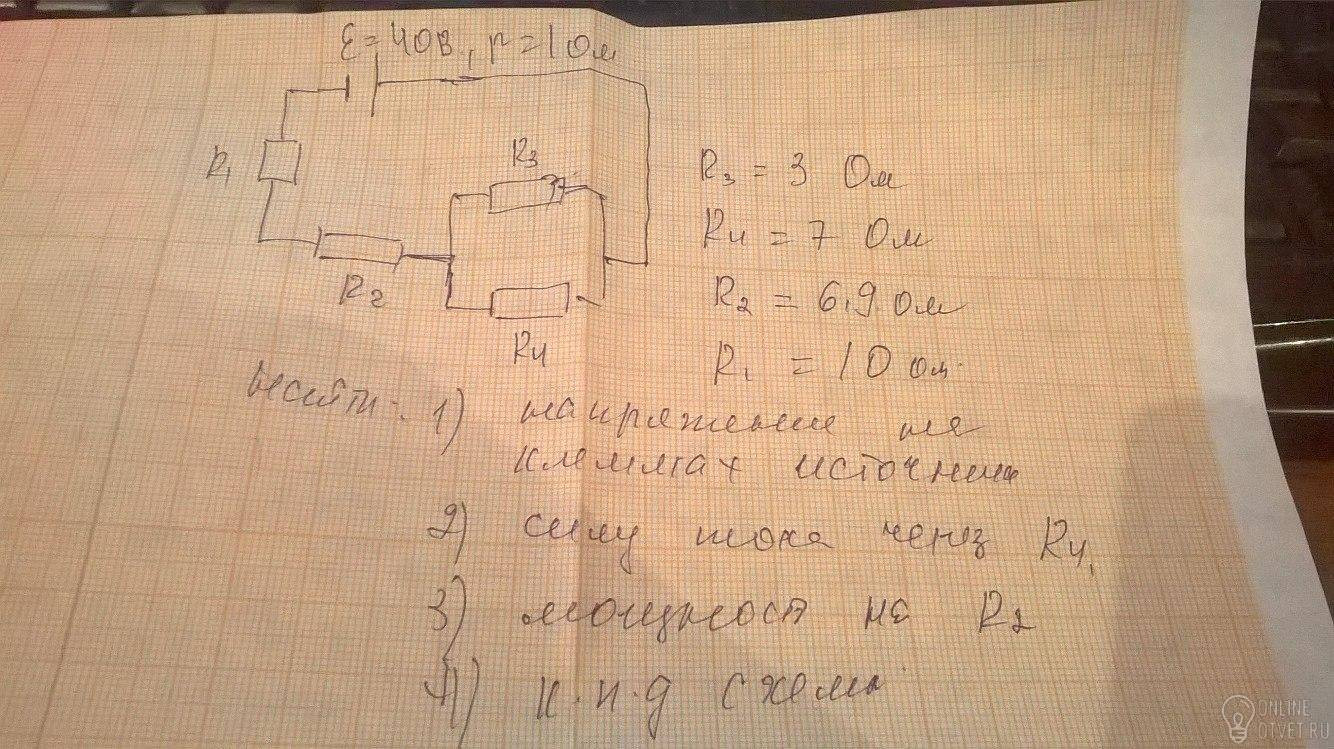 ε = 40В, r = 1 Ом
R₁
R₃
R₂
R₄
R₃ = 3 Ом
R₄ = 7 Ом
R₂ = 6,9 Ом
R₁ = 10 Ом.
Найти: 1) напряжение на
клеммах источника
2) силу тока через R₄,
3) мощност на R₂
4) к.п.д схемы
ONLINE
OTVET.RU